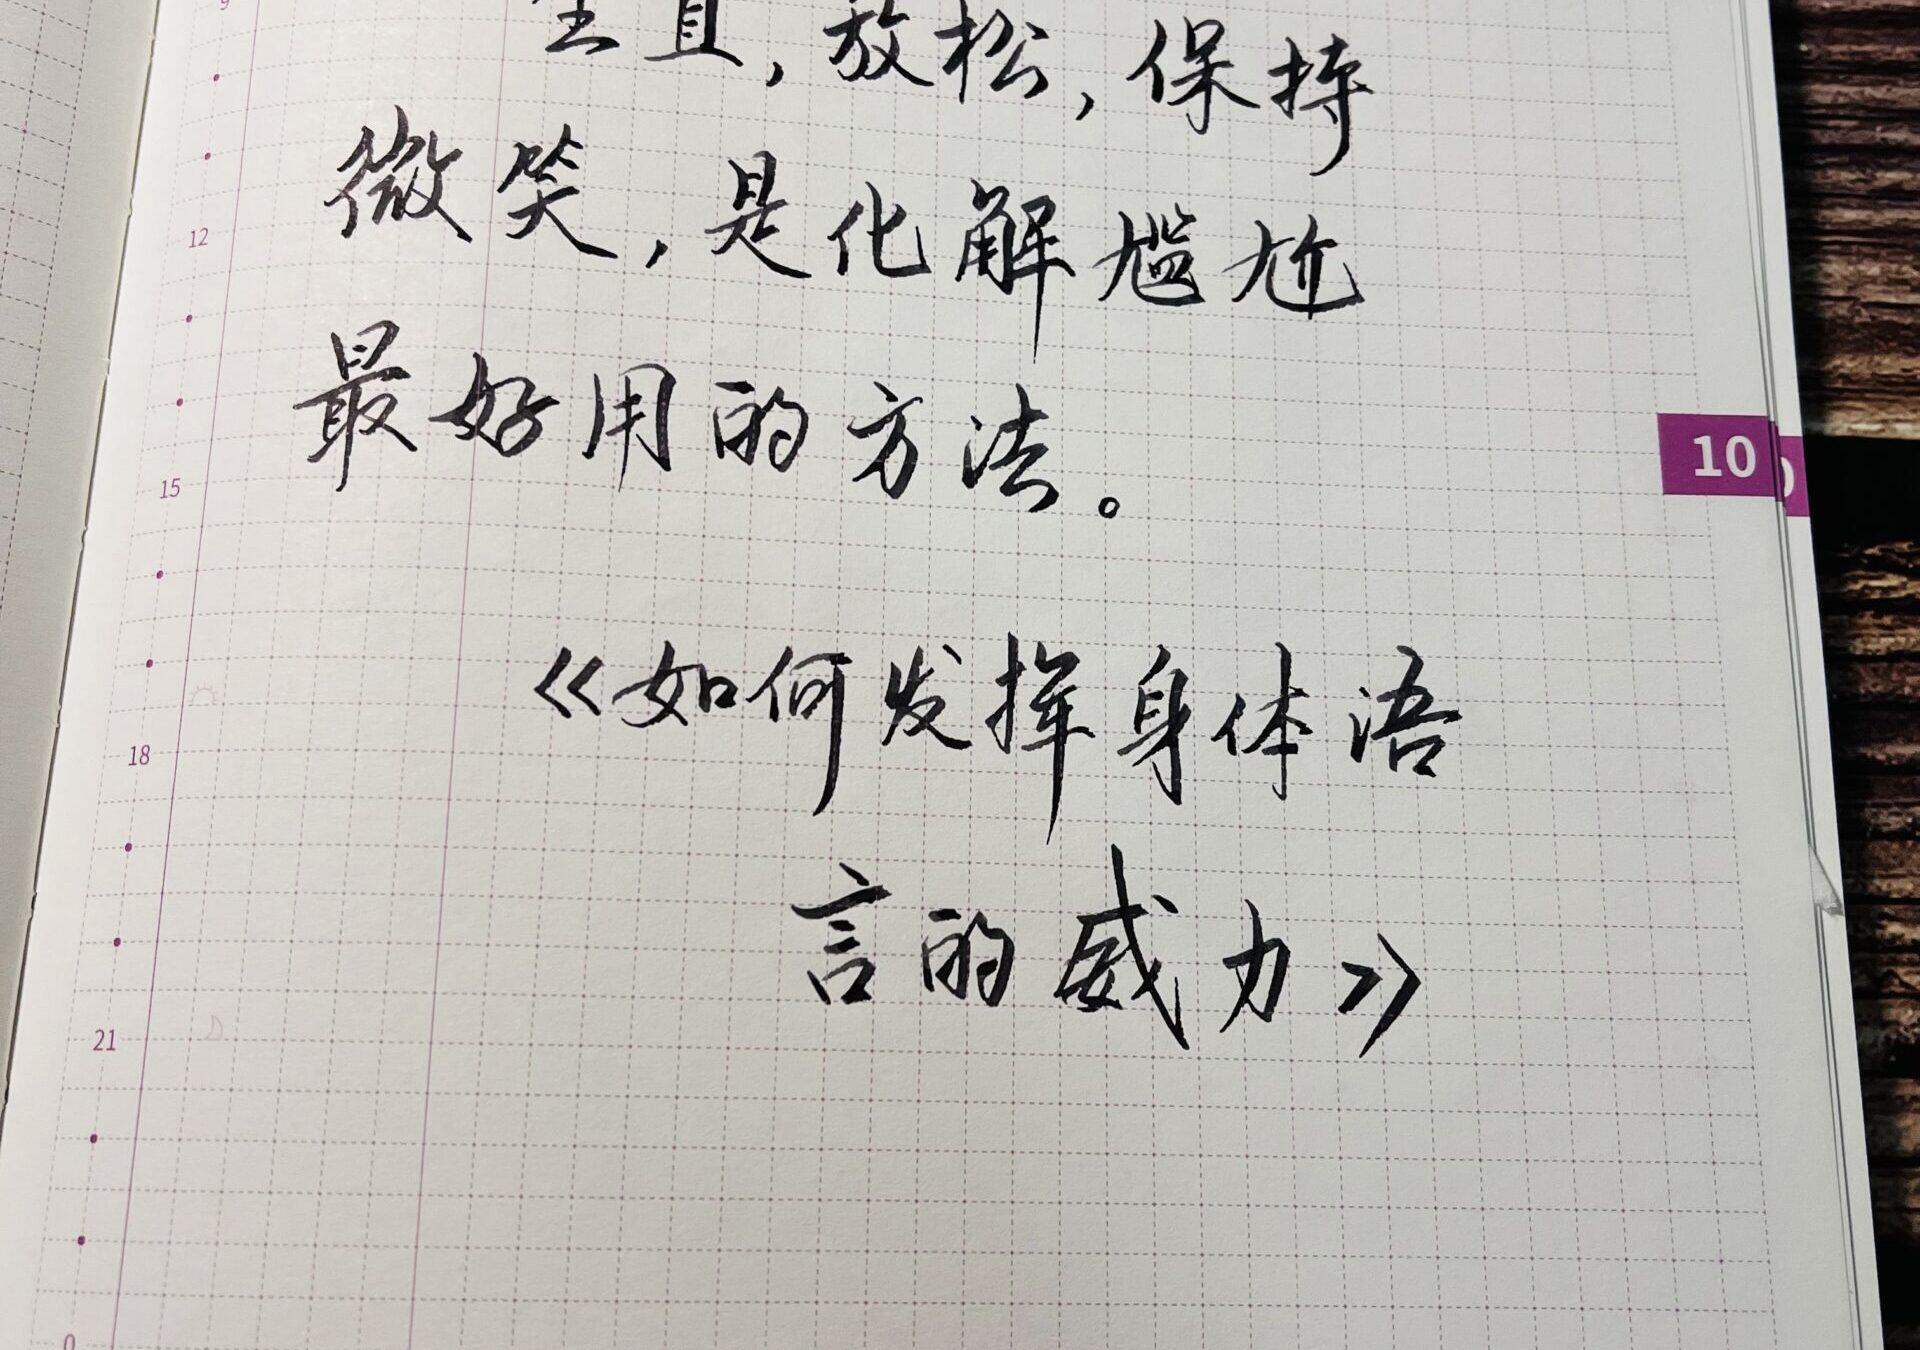 坐直，放松，保持
微笑，是化解尴尬
最好用的方法。
《如何发挥身体语
言的威力》
9
12
15
18
21
0
10